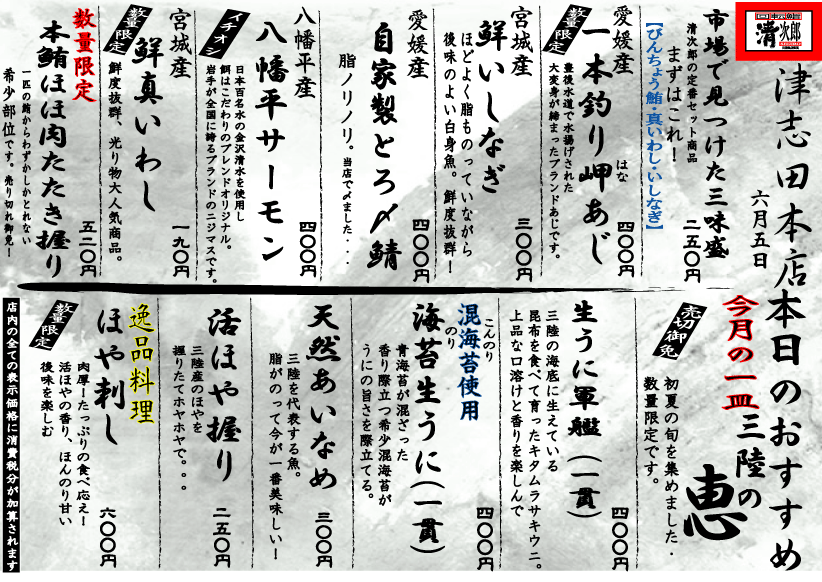 清次郎
津志田本店
六月五日
本日のおすすめ
市場で見つけた三味盛
清次郎の定番セット商品
まずはこれ！
【びんちょう鮪・真いわし・いしなぎ】
二五〇円
愛媛産
数量限定
一本釣り岬あじ
はな
豊後水道で水揚げされた
大変身が締まったブランドあじです。
四〇〇円
宮城産
鮮いしなぎ
ほどよく脂ものっていながら
後味のよい白身魚。鮮度抜群！
三〇〇円
愛媛産
自家製とろ〆鯖
脂ノリノリ。当店で〆ました・・・
四〇〇円
八幡平産
イチオシ
八幡平サーモン
日本百名水の金沢清水を使用し
餌はこだわりのブレンドオリジナル。
岩手が全国に誇るブランドのニジマスです。
四〇〇円
宮城産
数量限定
鮮真いわし
鮮度抜群、光り物大人気商品。
一九〇円
数量限定
本鮪ほほ肉たたき握り
一匹の鮪からわずかしかとれない
希少部位です。売り切れ御免！
五二〇円
今月の一皿
三陸の
恵
売切御免
初夏の旬を集めました・
数量限定です。
生うに軍艦（一貫）
三陸の海底に生えている
昆布を食べて育ったキタムラサキウニ。
上品な口溶けと香りを楽しんで
四〇〇円
こんのり
混海苔使用
のり
海苔生うに（一貫）
青海苔が混ざった
香り際立つ希少混海苔が
うにの旨さを際立てる。
四〇〇円
天然あいなめ
三陸を代表する魚。
脂がのって今が一番美味しい！
三〇〇円
活ほや握り
三陸産のほやを
握りたてホヤホヤで。。。
二五〇円
逸品料理
ほや刺し
数量限定
肉厚！たっぷりの食べ応え！
活ほやの香り、ほんのり甘い
後味を楽しむ
六〇〇円
店内の全ての表示価格に消費税分が加算されます